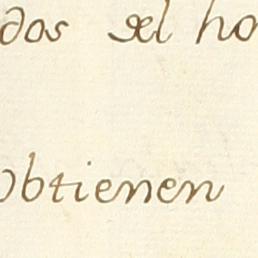 dos del ho
Obtienen